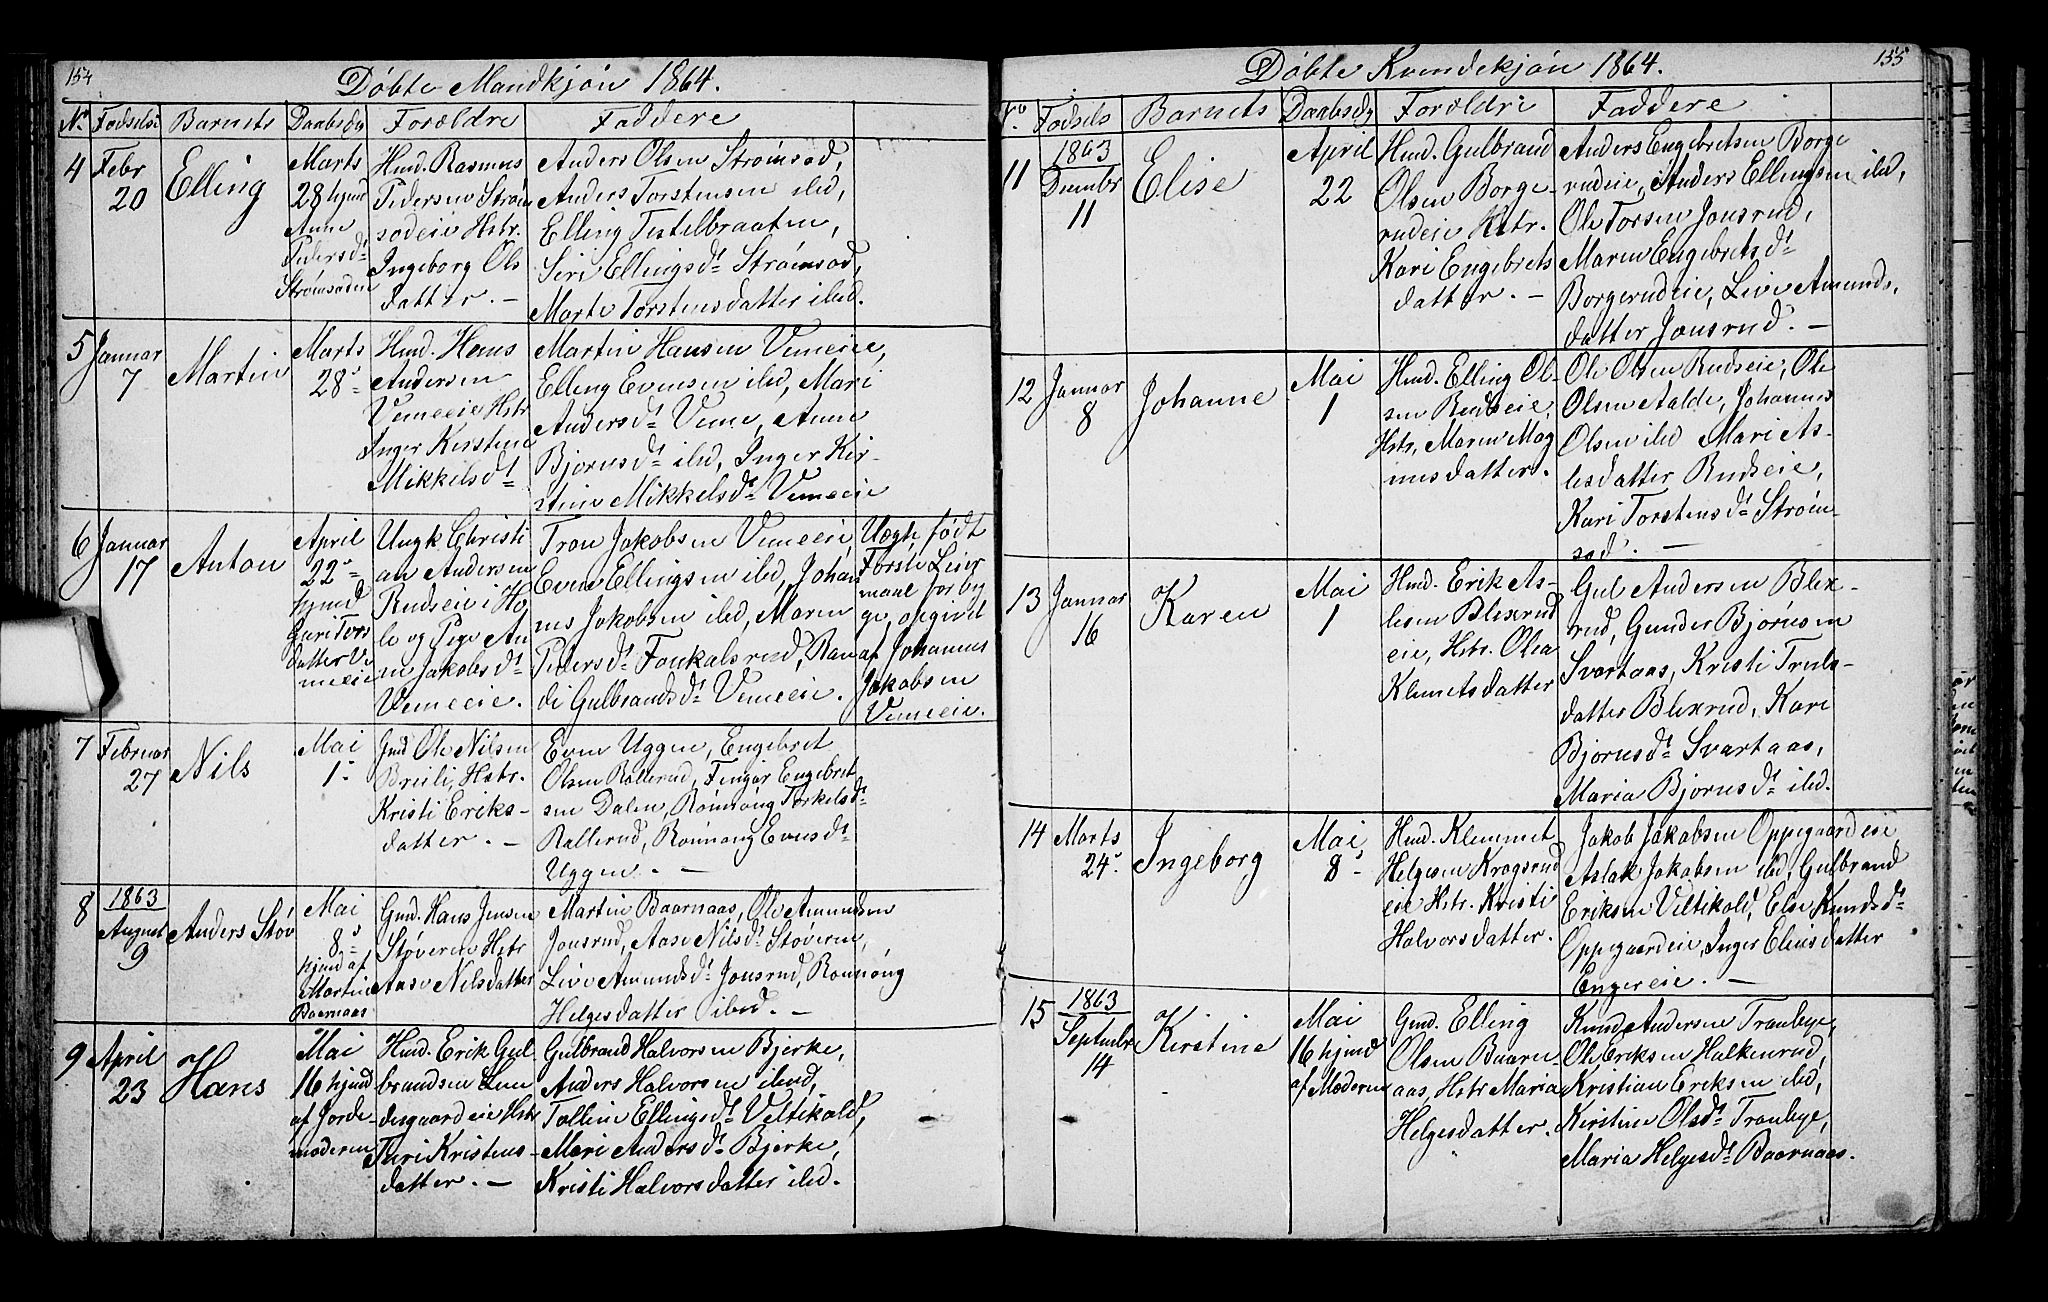 154
Döbte Mandkjön 1864.
No Födselsd Barnets Daabsdag Foræeldre Faddere
4 Febr 20
Elling
Marts
28 hjmd
Anne
Pedersdt
Strömsoden
Hmd. Rasmus
Pedersen Ström
sodeie Hstr.
Ingeborg Ols
datter. —
Anders Olsen Strömsod,
Anders Torstensen ibd,
Elling Testelbraaten,
Siri Ellingsdt Strömsod,
Marte Torstensdatter ibd.
5 Januar 7
Martin
Marts
28
Hmd. Hans
Andersen
Vemeeie Hstr
Inger Kirstine
Mikkelsdt
Martin Hansen Vemeeie,
Elling Evensen ibd, Mari
Andersdt Veme, Anne
Bjornsdt ibd, Inger Kir-
stine Mikkelsdt Vemeeie
6 Januar 17
Anton
April
22
hjmd
Guri Tors
datter Ve
meeie
Ungk Christi
an Andersen
Rudseie i Ho
le og Pige An
ne Jakobsdt
Vemeeie.
Tron Jakobsen Vemeeie
Even Ellingsen ibd, Johan
nes Jakobsen ibd, Maren
Pedersdt Foukalsrud, Ran
di Gulbrandsdt Vemeeie.
Uægte født
Forste Leier
maal for by
ge, opgivet
af Johannes
Jakobsen
Vemeeie.
7 Februar 27
Nils
Mai
1
Gmd Ole Nilsen
Breili, Hstr.
Kristi Eriks-
datter. —
Even Uggen, Engebret
Olsen Rallerud, Fingar Engebret
sen Dalen, Rönnöng Torkelsdt
Rallerud, Rönnaug Evensdt
Uggen. —
8 1863
August 9
Anders Stöv
Mai
8
hjmd af
Martin
Baarnaas
Gmd. Hans Jensen
Stöveren Hstr
Aase Nilsdatter
Martin Baarnaas, Ole Amundsen
Jonsrud, Aase Nilsdt Stöveren,
Live Amundsdt Jonsrud, Ronnöng
Helgesdatter ibid. —
9 April 23
Hans
Mai
16 hjmd
af Jorde-
moderen
Hmd. Erik Gul-
brandsen Lun
desgaardeie Hstr
Turi Kristens-
datter. —
Gulbrand Halvorsen Bjerke,
Anders Halvorsen ibid,
Tolline Ellingsdt Veltikold,
Mari Andersdt Bjerke,
Kristi Halvorsdatter ibd.
155
Döbte Kvindekjön 1864.
No. Födsels Barnets Daabsdg Forældre Faddere
11 1863
Decembr 11
Elise
April
22
Hmd. Gulbrand
Olsen Borge-
rudeie Hstr.
Kari Engebrets
datter. —
Anders Engebretsen Borge
rudeie, Anders Ellingsen ibd,
Ole Torsen Jonsrud,
Maren Engebretsdt
Borgerudeie, Live Amunds-
datter Jonsrud. —
12 Januar 8
Johanne
Mai
1
Hmd. Elling Ol-
sen Rudseie,
Hstr. Maren Mag
nesdatter.
Ole Olsen Rudseie, Ole
Olsen Aalde, Johannes
Olsen ibd Mari As-
lesdatter Rudseie,
Kari Torstensdt Ström-
sod. —
13 Januar 16
Karen
Mai
1
Hmd. Erik As-
lesen Blexrud
eie, Hstr. Olea
Klemetsdatter
Gul Andersen Blex-
rud, Gunder Bjørnsen
Svartaas, Kristi Truls-
datter Blexrud, Kari
Bjornsdt Svartaas,
Maria Bjornsdt ibd.
14 Marts 24
Ingeborg
Mai
8
Hmd. Klemmet
Helgesen Krogsrud
eie Hstr. Kristi
Halvorsdatter.
Jakob Jakobsen Oppegaardeie
Aslak Jakobsen ibd, Gulbrand
Eriksen Veltikold, Else Knudsdt
Oppegaardeie, Inger Eliasdatter
Engereie. —
15 1863
Septembr 14
Kirstine
Mai
16 hjmd
af Moderen
Gmd. Elling
Olsen Baarn
aas, Hstr Maria
Helgesdatter.
Knud Andersen Tranbye,
Ole Eriksen Halkenrud,
Kristian Eriksen ibd,
Kirstine Olsdt Tranbye,
Maria Helgesdt Baarnaas.